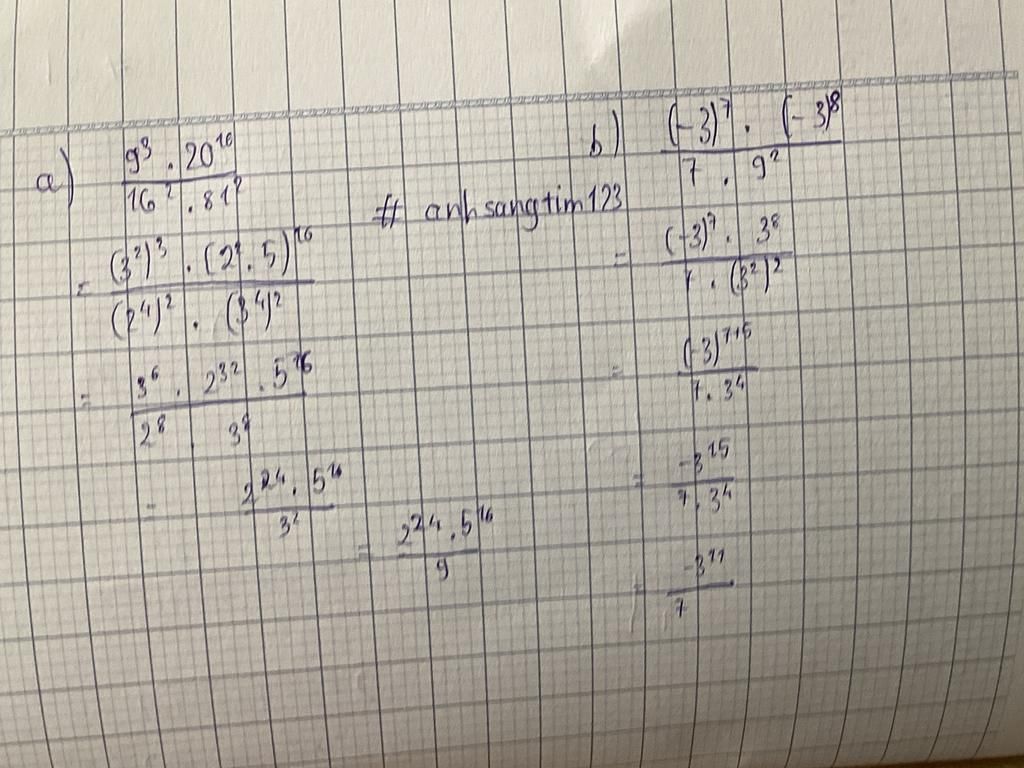 a) \frac{9^3 . 20^{16}}{16^2 . 81^2}
= \frac{(3^2)^3 . (2^2 . 5)^{16}}{(2^4)^2 . (3^4)^2}
= \frac{3^6 . 2^{32} . 5^{16}}{2^8 . 3^8}
= \frac{2^{24} . 5^{16}}{3^2}
= \frac{2^{24} . 5^{16}}{9}
# anhsangtim123
b) \frac{(-3)^7 . (-3)^8}{7 . 9^2}
= \frac{(-3)^7 . 3^8}{7 . (3^2)^2}
= \frac{(-3)^{7+8}}{7 . 3^4}
= \frac{-3^{15}}{7 . 3^4}
= \frac{-3^{11}}{7}